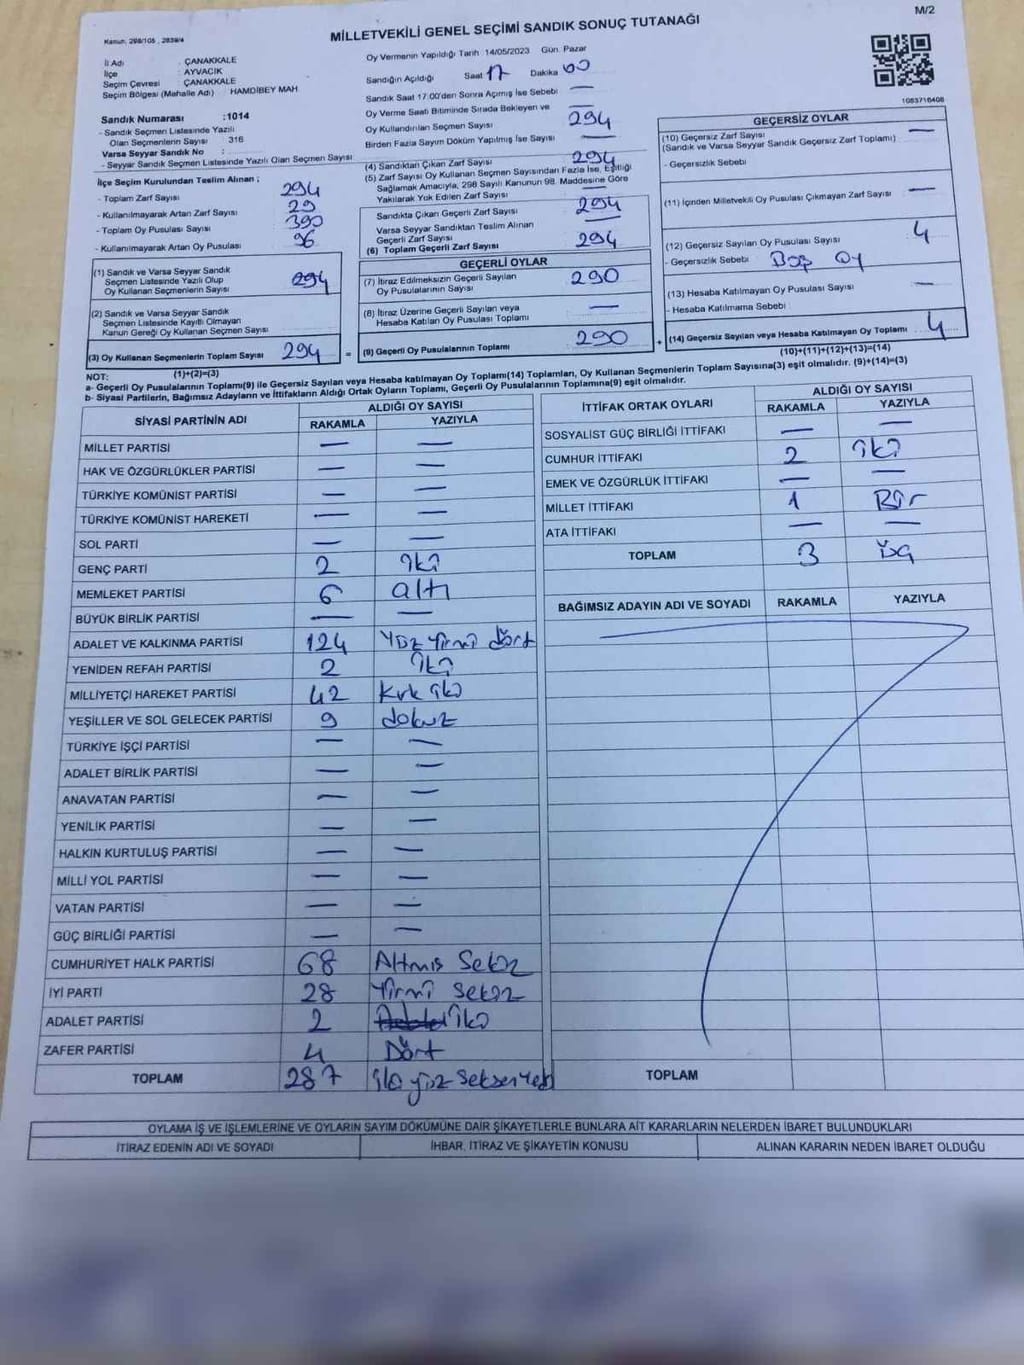 M/2
Kanun: 298/105 , 2839/4
MİLLETVEKİLİ GENEL SEÇİMİ SANDIK SONUÇ TUTANAĞI
İl Adı : ÇANAKKALE
İlçe : AYVACIK
Seçim Çevresi : ÇANAKKALE
Seçim Bölgesi (Mahalle Adı) : HAMDİBEY MAH
Sandık Numarası :1014
- Sandık Seçmen Listesinde Yazılı
Olan Seçmenlerin Sayısı 316
Varsa Seyyar Sandık No :
- Seyyar Sandık Seçmen Listesinde Yazılı Olan Seçmen Sayısı
İlçe Seçim Kurulundan Teslim Alınan ;
- Toplam Zarf Sayısı 294
- Kullanılmayarak Artan Zarf Sayısı 29
- Toplam Oy Pusulası Sayısı 390
- Kullanılmayarak Artan Oy Pusulası 96
(1) Sandık ve Varsa Seyyar Sandık
Seçmen Listesinde Yazılı Olup
Oy Kullanan Seçmenlerin Sayısı 294
(2) Sandık ve Varsa Seyyar Sandık
Seçmen Listesinde Kayıtlı Olmayan
Kanun Gereği Oy Kullanan Seçmen Sayısı
(3) Oy Kullanan Seçmenlerin Toplam Sayısı 294 =
(1)+(2)=(3)
Oy Vermenin Yapıldığı Tarih 14/05/2023 Gün Pazar
Sandığın Açıldığı Saat 17 Dakika 00
Sandık Saat 17:00'den Sonra Açımış İse Sebebi —
Oy Verme Saati Bitiminde Sırada Bekleyen ve —
Oy Kullandırılan Seçmen Sayısı 294
Birden Fazla Sayım Döküm Yapılmış İse Sayısı —
(4) Sandıktan Çıkan Zarf Sayısı 294
(5) Zarf Sayısı Oy Kullanan Seçmen Sayısından Fazla İse, Eşitliği
Sağlamak Amacıyla, 298 Sayılı Kanunun 98. Maddesine Göre
Yakılarak Yok Edilen Zarf Sayısı —
Sandıkta Çıkan Geçerli Zarf Sayısı 294
Varsa Seyyar Sandıktan Teslim Alınan
Geçerli Zarf Sayısı —
(6) Toplam Geçerli Zarf Sayısı 294
GEÇERLİ OYLAR
(7) İtiraz Edilmeksizin Geçerli Sayılan
Oy Pusulalarının Sayısı 290
(8) İtiraz Üzerine Geçerli Sayılan veya
Hesaba Katılan Oy Pusulası Toplamı —
(9) Geçerli Oy Pusulalarının Toplamı 290 +
1083716408
GEÇERSİZ OYLAR
(10) Geçersiz Zarf Sayısı —
(Sandık ve Varsa Seyyar Sandık Geçersiz Zarf Toplamı)
- Geçersizlik Sebebi
(11) İçinden Milletvekili Oy Pusulası Çıkmayan Zarf Sayısı —
(12) Geçersiz Sayılan Oy Pusulası Sayısı 4
- Geçersizlik Sebebi Boş Oy
(13) Hesaba Katılmayan Oy Pusulası Sayısı —
- Hesaba Katılmama Sebebi
(14) Geçersiz Sayılan veya Hesaba Katılmayan Oy Toplamı 4
(10)+(11)+(12)+(13)=(14)
NOT:
a- Geçerli Oy Pusulalarının Toplamı(9) ile Geçersiz Sayılan veya Hesaba katılmayan Oy Toplamı(14) Toplamları, Oy Kullanan Seçmenlerin Toplam Sayısına(3) eşit olmalıdır. (9)+(14)=(3)
b- Siyasi Partilerin, Bağımsız Adayların ve İttifakların Aldığı Ortak Oyların Toplamı, Geçerli Oy Pusulalarının Toplamına(9) eşit olmalıdır.
SİYASİ PARTİNİN ADI ALDIĞI OY SAYISI
RAKAMLA YAZIYLA
MİLLET PARTİSİ — —
HAK VE ÖZGÜRLÜKLER PARTİSİ — —
TÜRKİYE KOMÜNİST PARTİSİ — —
TÜRKİYE KOMÜNİST HAREKETİ — —
SOL PARTİ — —
GENÇ PARTİ 2 iki
MEMLEKET PARTİSİ 6 altı
BÜYÜK BİRLİK PARTİSİ — —
ADALET VE KALKINMA PARTİSİ 124 Yüz Yirmi dört
YENİDEN REFAH PARTİSİ 2 iki
MİLLİYETÇİ HAREKET PARTİSİ 42 Kırk iki
YEŞİLLER VE SOL GELECEK PARTİSİ 9 dokuz
TÜRKİYE İŞÇİ PARTİSİ — —
ADALET BİRLİK PARTİSİ — —
ANAVATAN PARTİSİ — —
YENİLİK PARTİSİ — —
HALKIN KURTULUŞ PARTİSİ — —
MİLLİ YOL PARTİSİ — —
VATAN PARTİSİ — —
GÜÇ BİRLİĞİ PARTİSİ — —
CUMHURİYET HALK PARTİSİ 68 Altmış Sekiz
İYİ PARTİ 28 Yirmi Sekiz
ADALET PARTİSİ 2 iki
ZAFER PARTİSİ 4 Dört
TOPLAM 287 iki yüz Seksen Yedi
İTTİFAK ORTAK OYLARI ALDIĞI OY SAYISI
RAKAMLA YAZIYLA
SOSYALİST GÜÇ BİRLİĞİ İTTİFAKI — —
CUMHUR İTTİFAKI 2 iki
EMEK VE ÖZGÜRLÜK İTTİFAKI — —
MİLLET İTTİFAKI 1 Bir
ATA İTTİFAKI — —
TOPLAM 3 Üç
BAĞIMSIZ ADAYIN ADI VE SOYADI RAKAMLA YAZIYLA
TOPLAM
OYLAMA İŞ VE İŞLEMLERİNE VE OYLARIN SAYIM DÖKÜMÜNE DAİR ŞİKAYETLERLE BUNLARA AİT KARARLARIN NELERDEN İBARET BULUNDUKLARI
İTİRAZ EDENİN ADI VE SOYADI İHBAR, İTİRAZ VE ŞİKAYETİN KONUSU ALINAN KARARIN NEDEN İBARET OLDUĞU